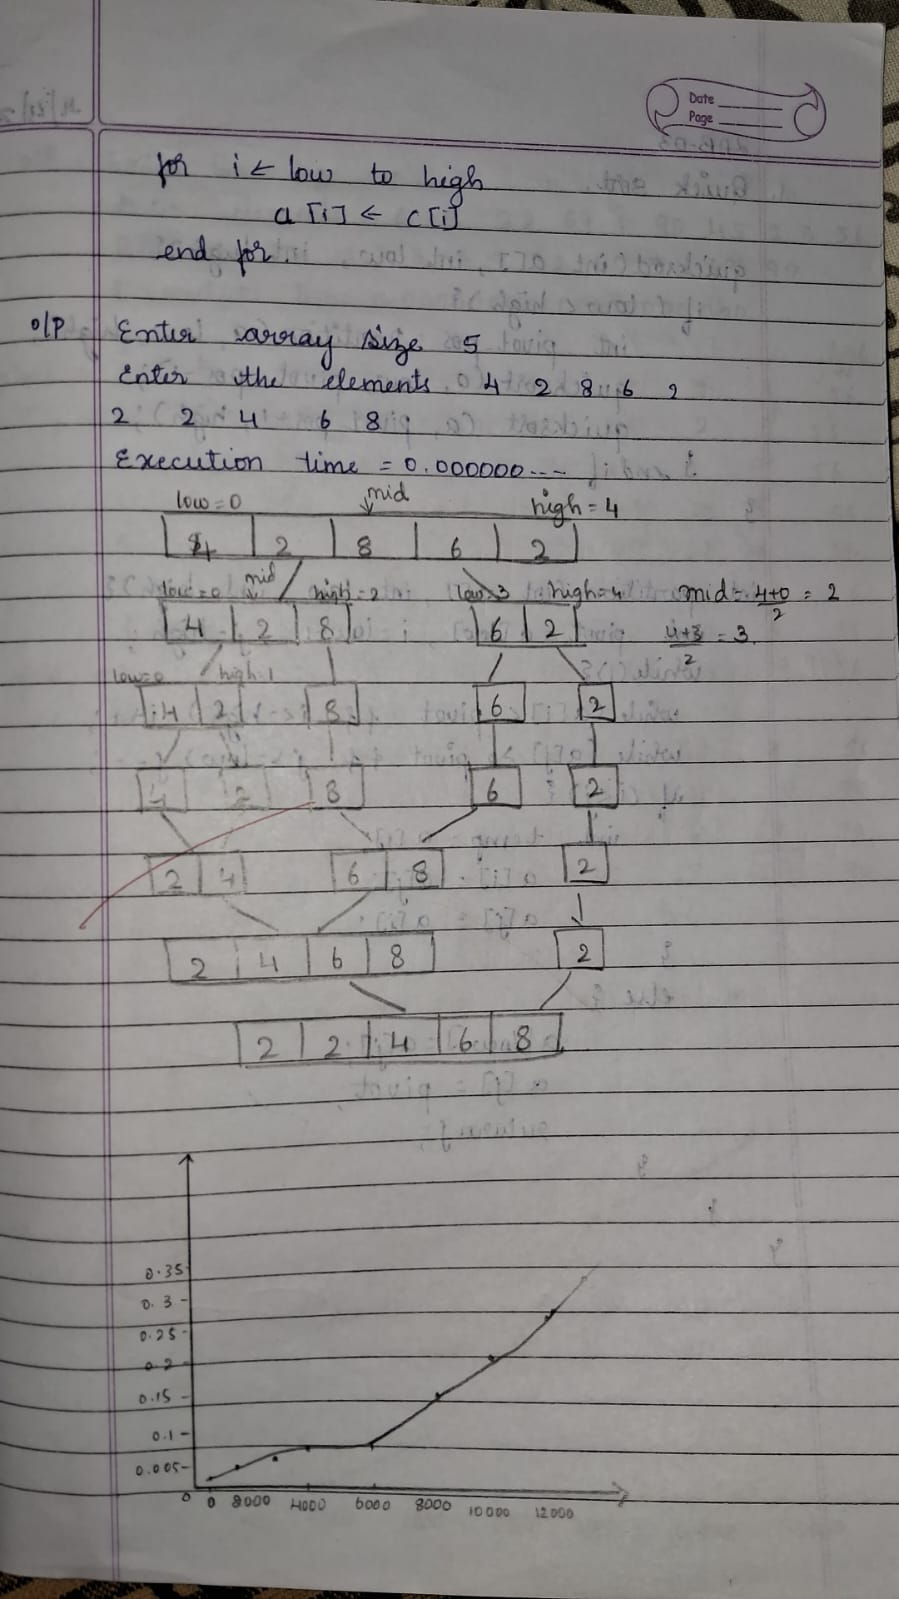 Date
Page
for i ← low to high
a[i] ← c[i]
end for
o/p Enter array size 5
Enter the elements 4 2 8 6 2
2 2 4 6 8
Execution time = 0.000000---
low=0 mid high=4
4 2 8 6 2
low=0 mid high=2 low=3 high=4 mid=4+0/2 = 2
4 2 8 6 2 4+3/2 = 3
low=0 high=1
4 2 8 6 2
4 2 8 6 2
2 4 6 8 2
2 4 6 8 2
2 2 4 6 8
0.35
0.3
0.25
0.2
0.15
0.1
0.005
0 0 2000 4000 6000 8000 10000 12000